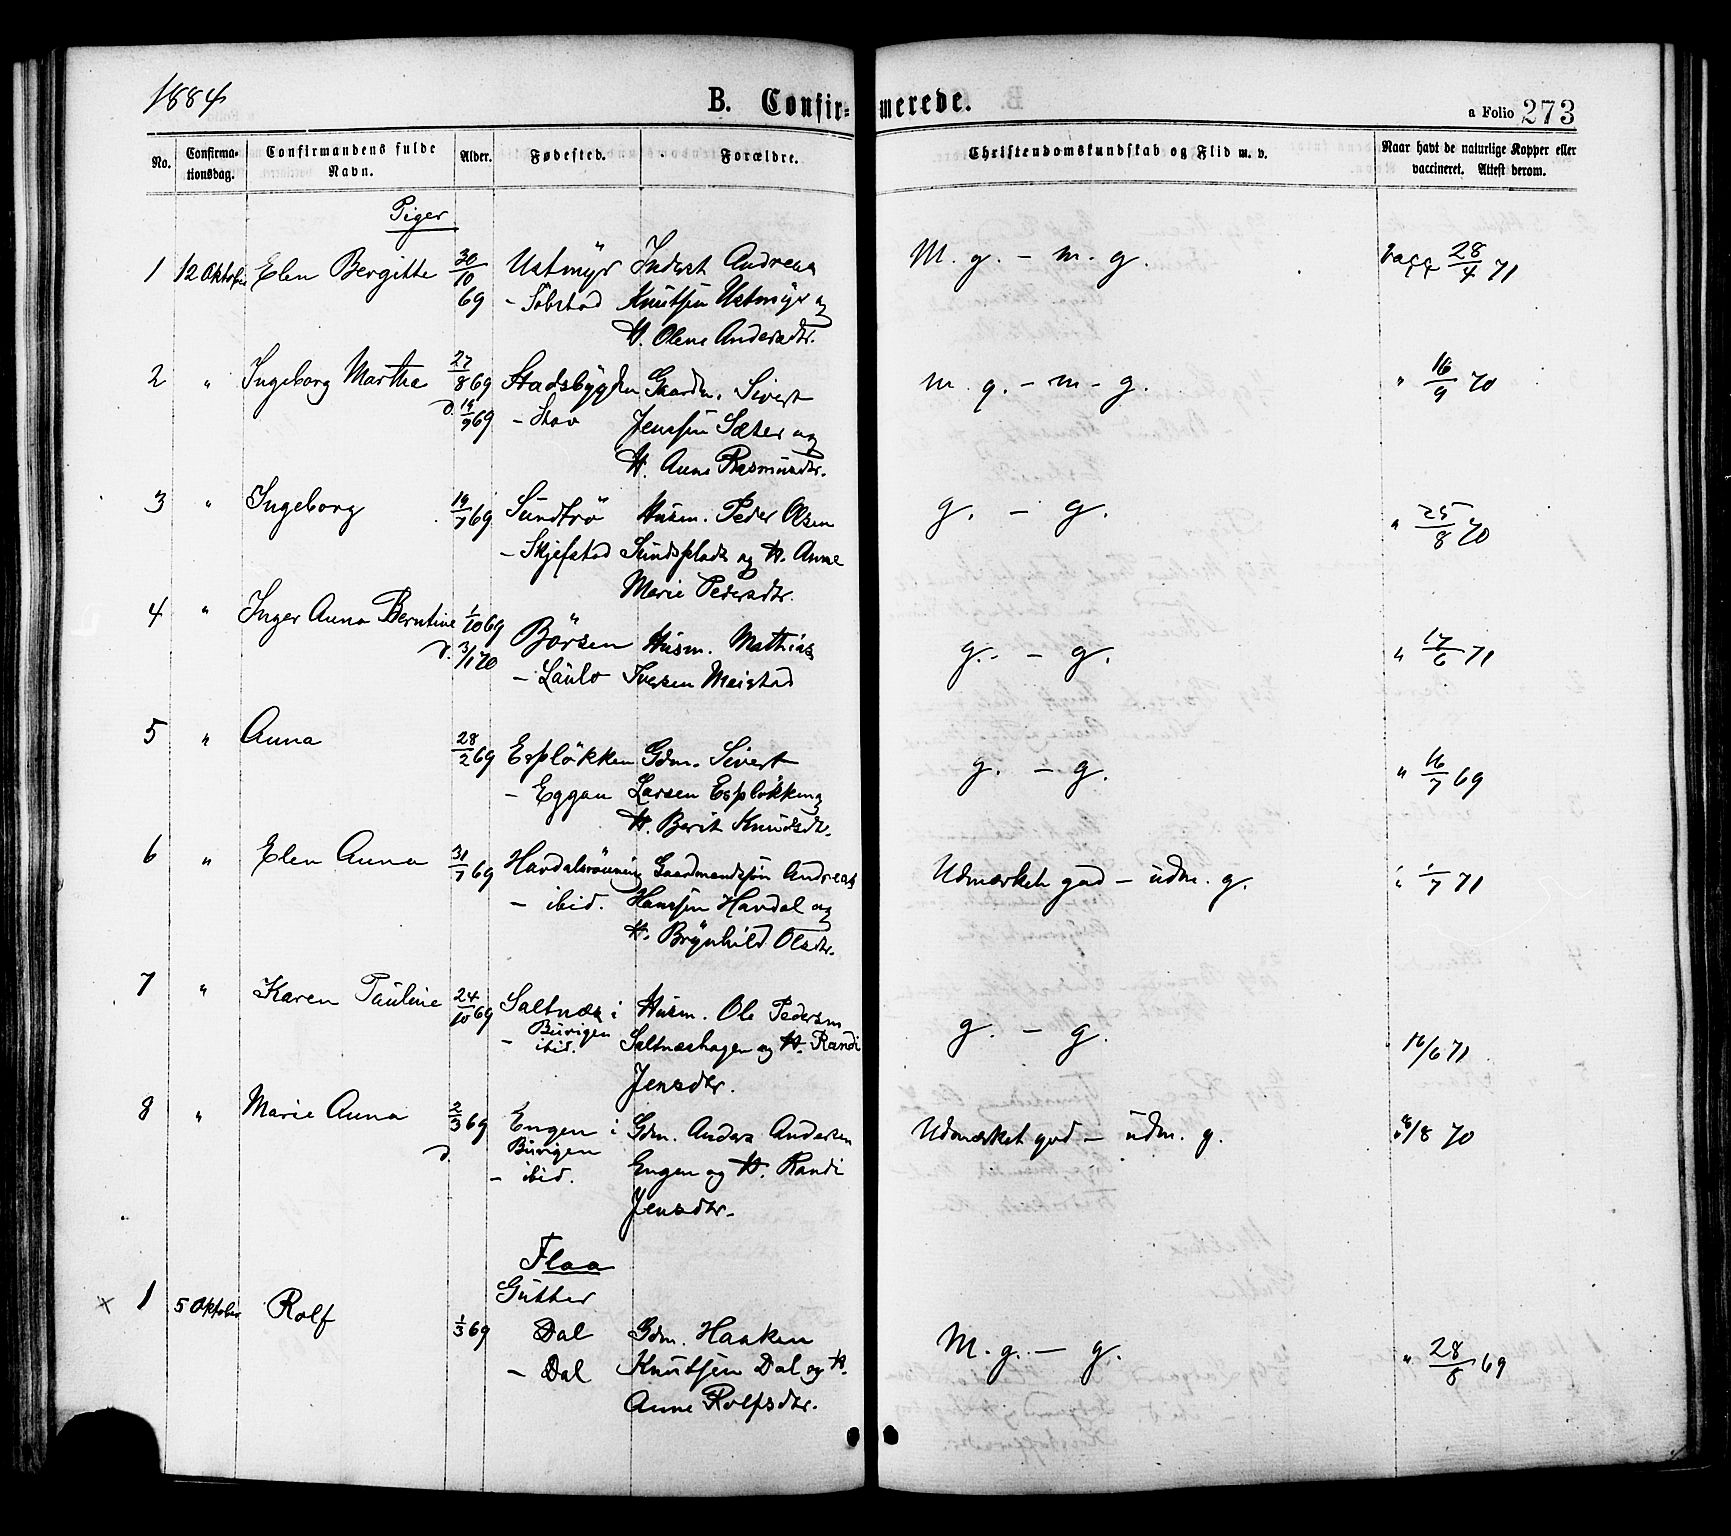 1884
B. Confir-merede.
a Folio 273
No. Confirma-tionsdag. Confirmandens fulde Navn. Alder. Fødested. Forældre. Christendomskundskab og Flid m. v. Naar havt de naturlige Kopper eller vaccineret. Attest derom.
Piger
1 12 Oktober Elen Bergitte 30/10 69 Ustmyr Inderst Andreas M. g. - m. g. Vacc 28/4 71
- Sobstad Knutsen Ustmyr og
H. Olene Andersdtr.
2 " Ingeborg Martha 27/8 69 Stadsbygden Gaardm. Sivert m. g. - m - g. " 16/9 70
d. 19/9 69 - Stav Jenssen Sæter og
H. Anne Rasmusdtr.
3 " Ingeborg 19/7 69 Sundtrö Husm. Peder Olsen g. - g. " 25/8 70
- Skjefstad Sundsplads og H. Anne
Marie Pedersdtr.
4 " Inger Anna Berntine 1/10 69 Börsen Husm. Mathias g. - g. " 17/6 71
d. 3/1 70 - Laulo Iversen Meistad
5 " Anna 28/2 69 Espløkken Gdm. Sivert g. - g. " 16/7 69
- Eggan Larsen Espløkken og
H. Berit Knudsdtr.
6 " Elen Anna 31/7 69 Havdalsrönning Gaardmandssøn Andreas Udmærket god - udm. g. " 1/7 71
- ibid. Hanssen Havdal og
H. Brynhild Olsdtr.
7 " Karen Pauline 24/10 69 Saltnæs i Husm. Ole Pedersen g. - g. " 16/6 71
- Büvigen ibid. Saltnæshagen og H. Randi
Jensdtr.
8 " Marie Anna 2/3 69 Engen i Gdm. Anders Andersen Udmærket god - udm. g. /8 70
d. Büvigen Engen og H. Randi
- ibid. Jensdtr.
Flaa
Gutter
× 1 5 Oktober Rolf 1/3 69 Dal Gdm. Haaken M. g. - g. " 28/8 69
- Dal Knutsen Dal og H.
Anne Rolfsdtr.